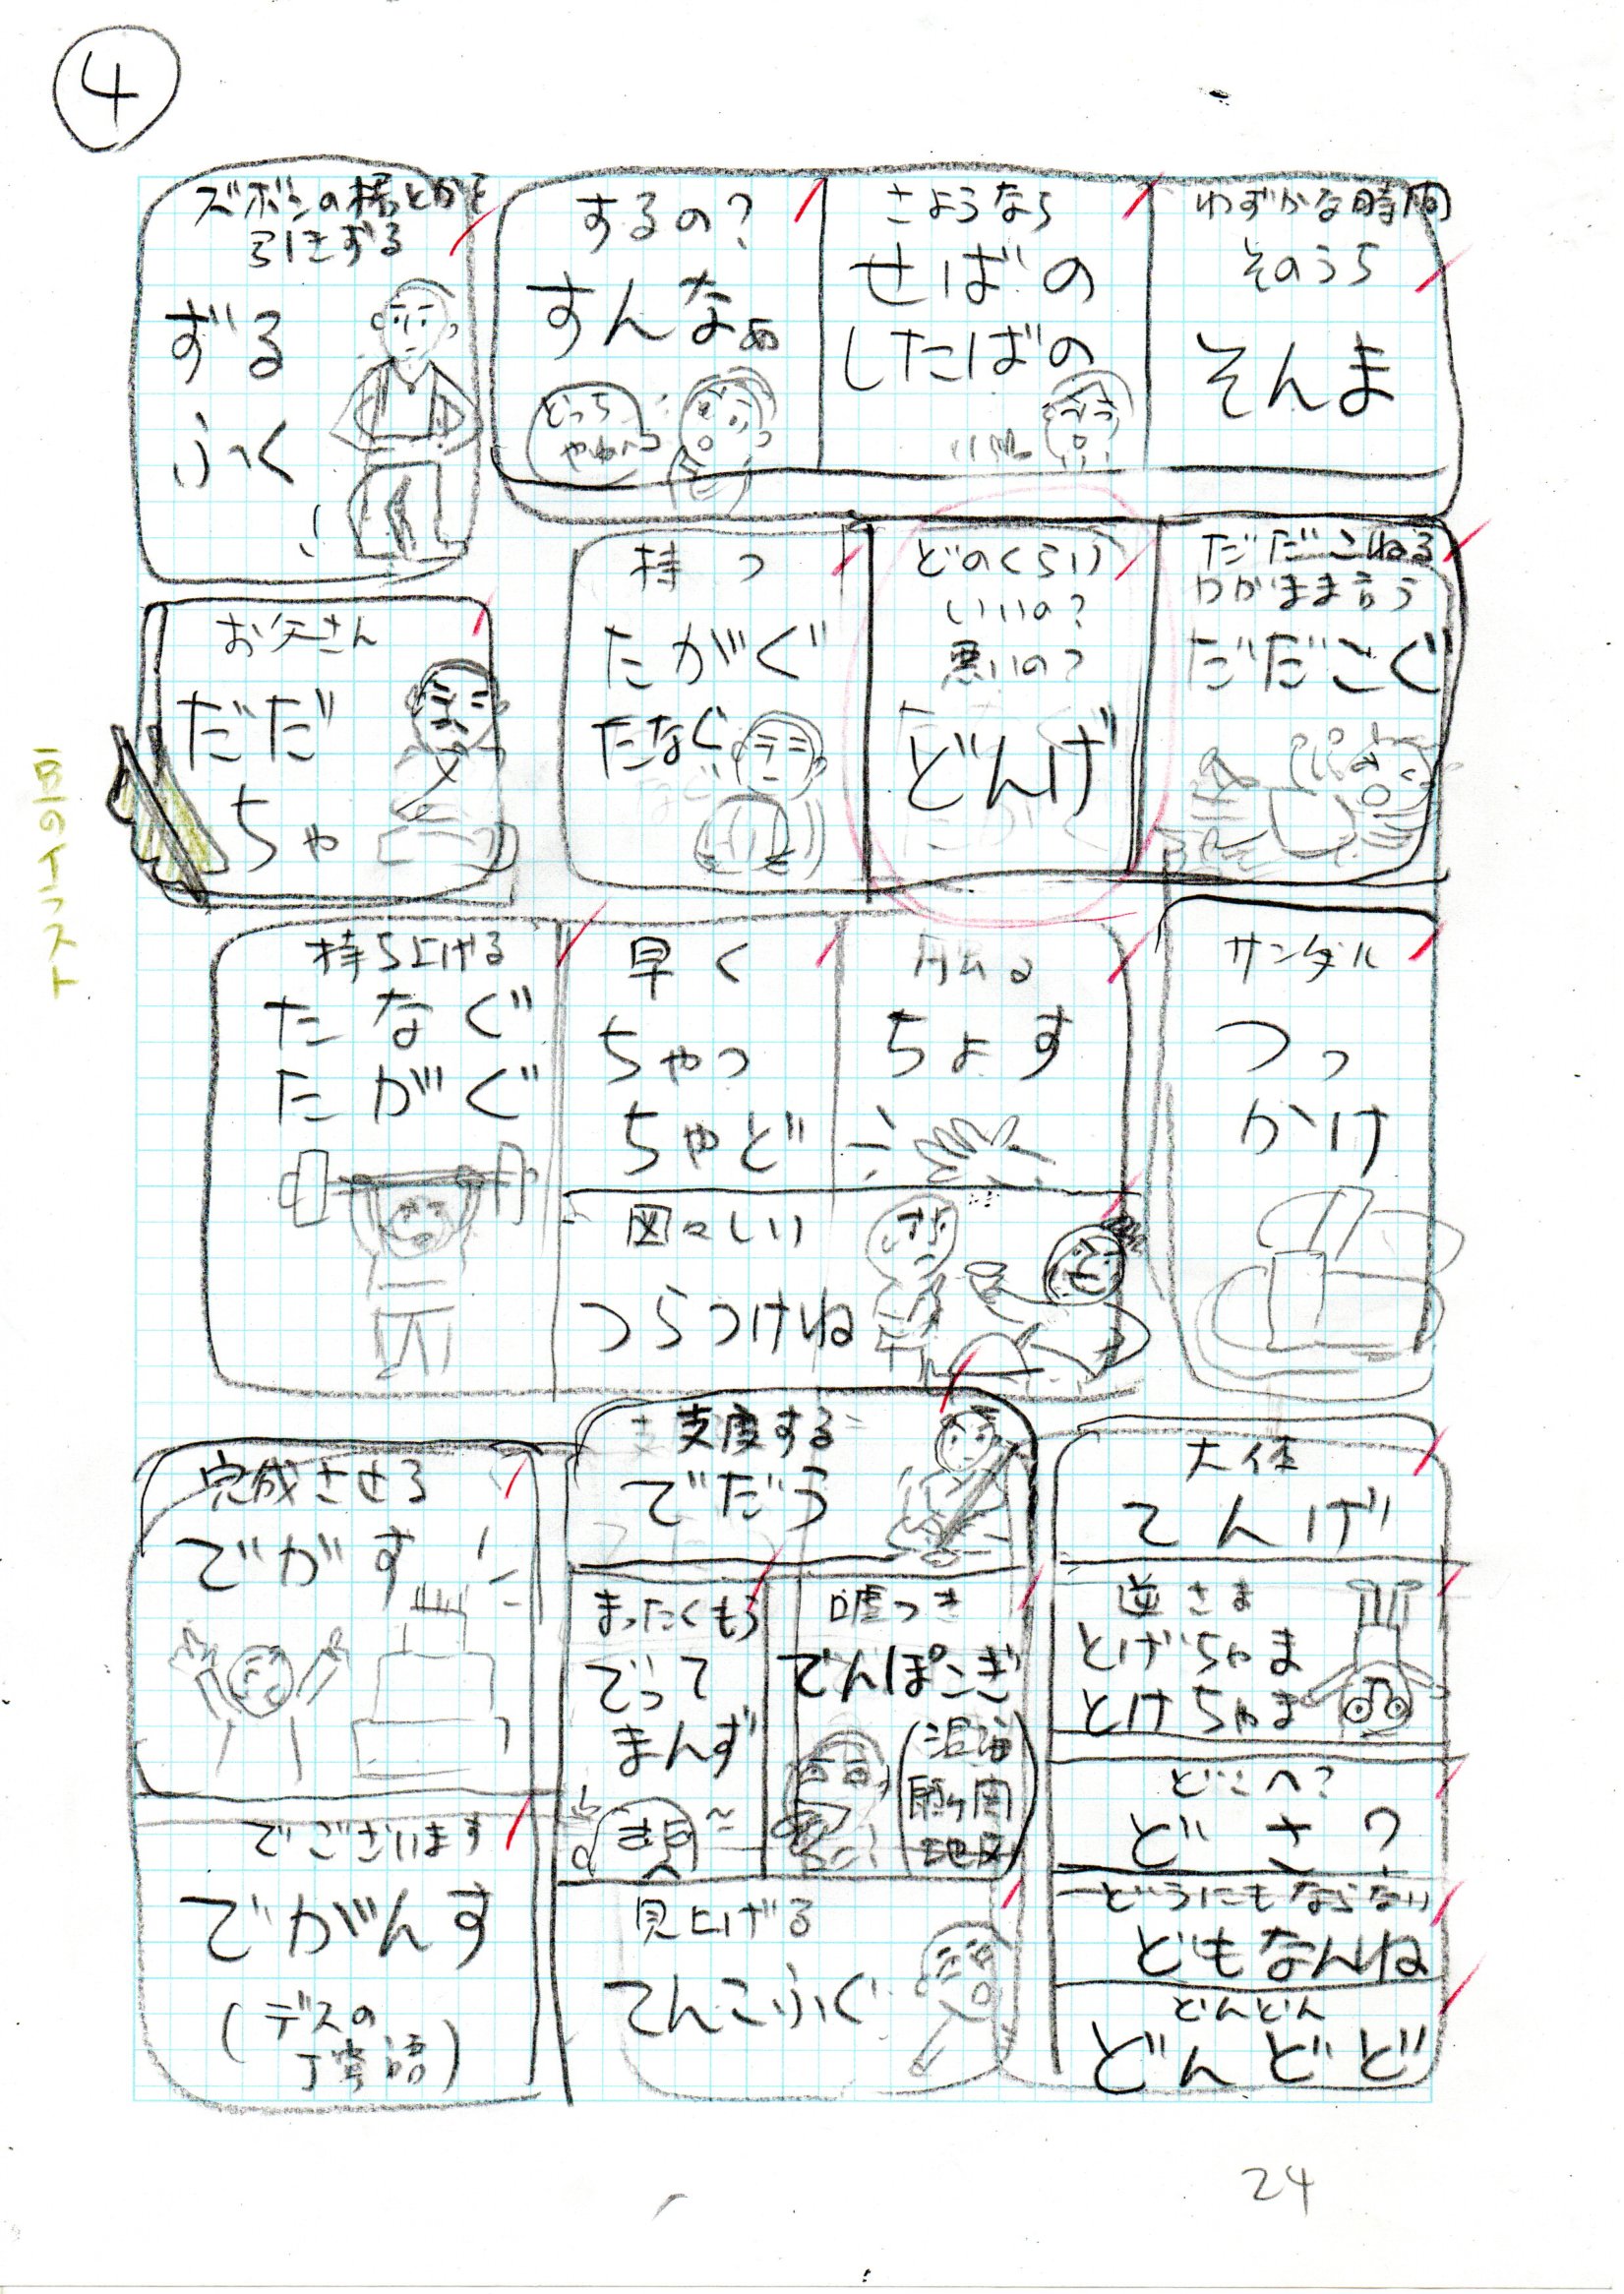 4
ズボンの裾とかを
引きずる
ずる
ふく
するの?
すんなぁ
どっち
さようなら
せばの
したばの
わずかな時間
そのうち
そんま
お父さん
だだ
ちゃ
持つ
たがぐ
たなぐ
どのくらい
いいの?
悪いの?
どんげ
だだこねる
わがまま言う
だだこぐ
旧のイラスト
持ち上げる
たなぐ
たがぐ
早く
ちゃっ
ちゃど
触る
ちょす
サンダル
つっ
かけ
図々しい
つらつけね
完成させる
でがす
支度する
でだう
大体
てんげ
まったくもう
でって
まんず
嘘つき
でんぽこぎ
(沼海
関
地区)
逆さま
とげちゃま
とけちゃま
どこへ?
どさ?
でございます
でがんす
(デスの
丁寧語)
見上げる
てんこふぐ
どうにもならない
どもなんね
どんどん
どんどど
24